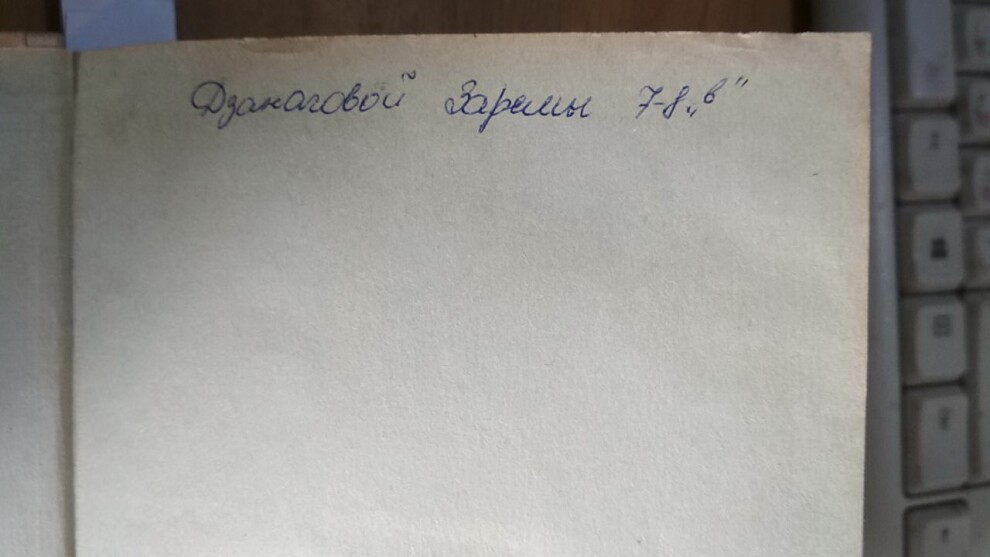 Дзанаговой Заремы 7-8 „в”